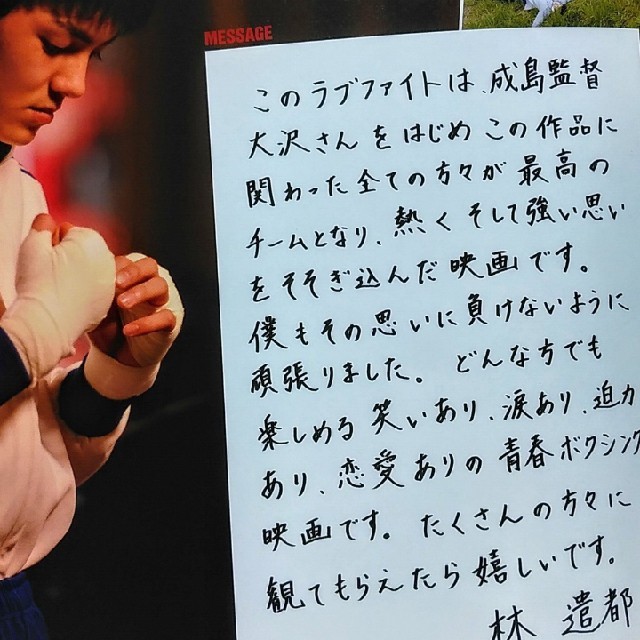 MESSAGE
このラブファイトは、成島監督
大沢さんをはじめこの作品に
関わった全ての方々が最高の
チームとなり、熱くそして強い思い
をそそぎ込んだ映画です。
僕もその思いに負けないように
頑張りました。どんな方でも
楽しめる笑いあり、涙あり、迫力
あり、恋愛ありの青春ボクシング
映画です。たくさんの方々に
観てもらえたら嬉しいです。
林 遣都